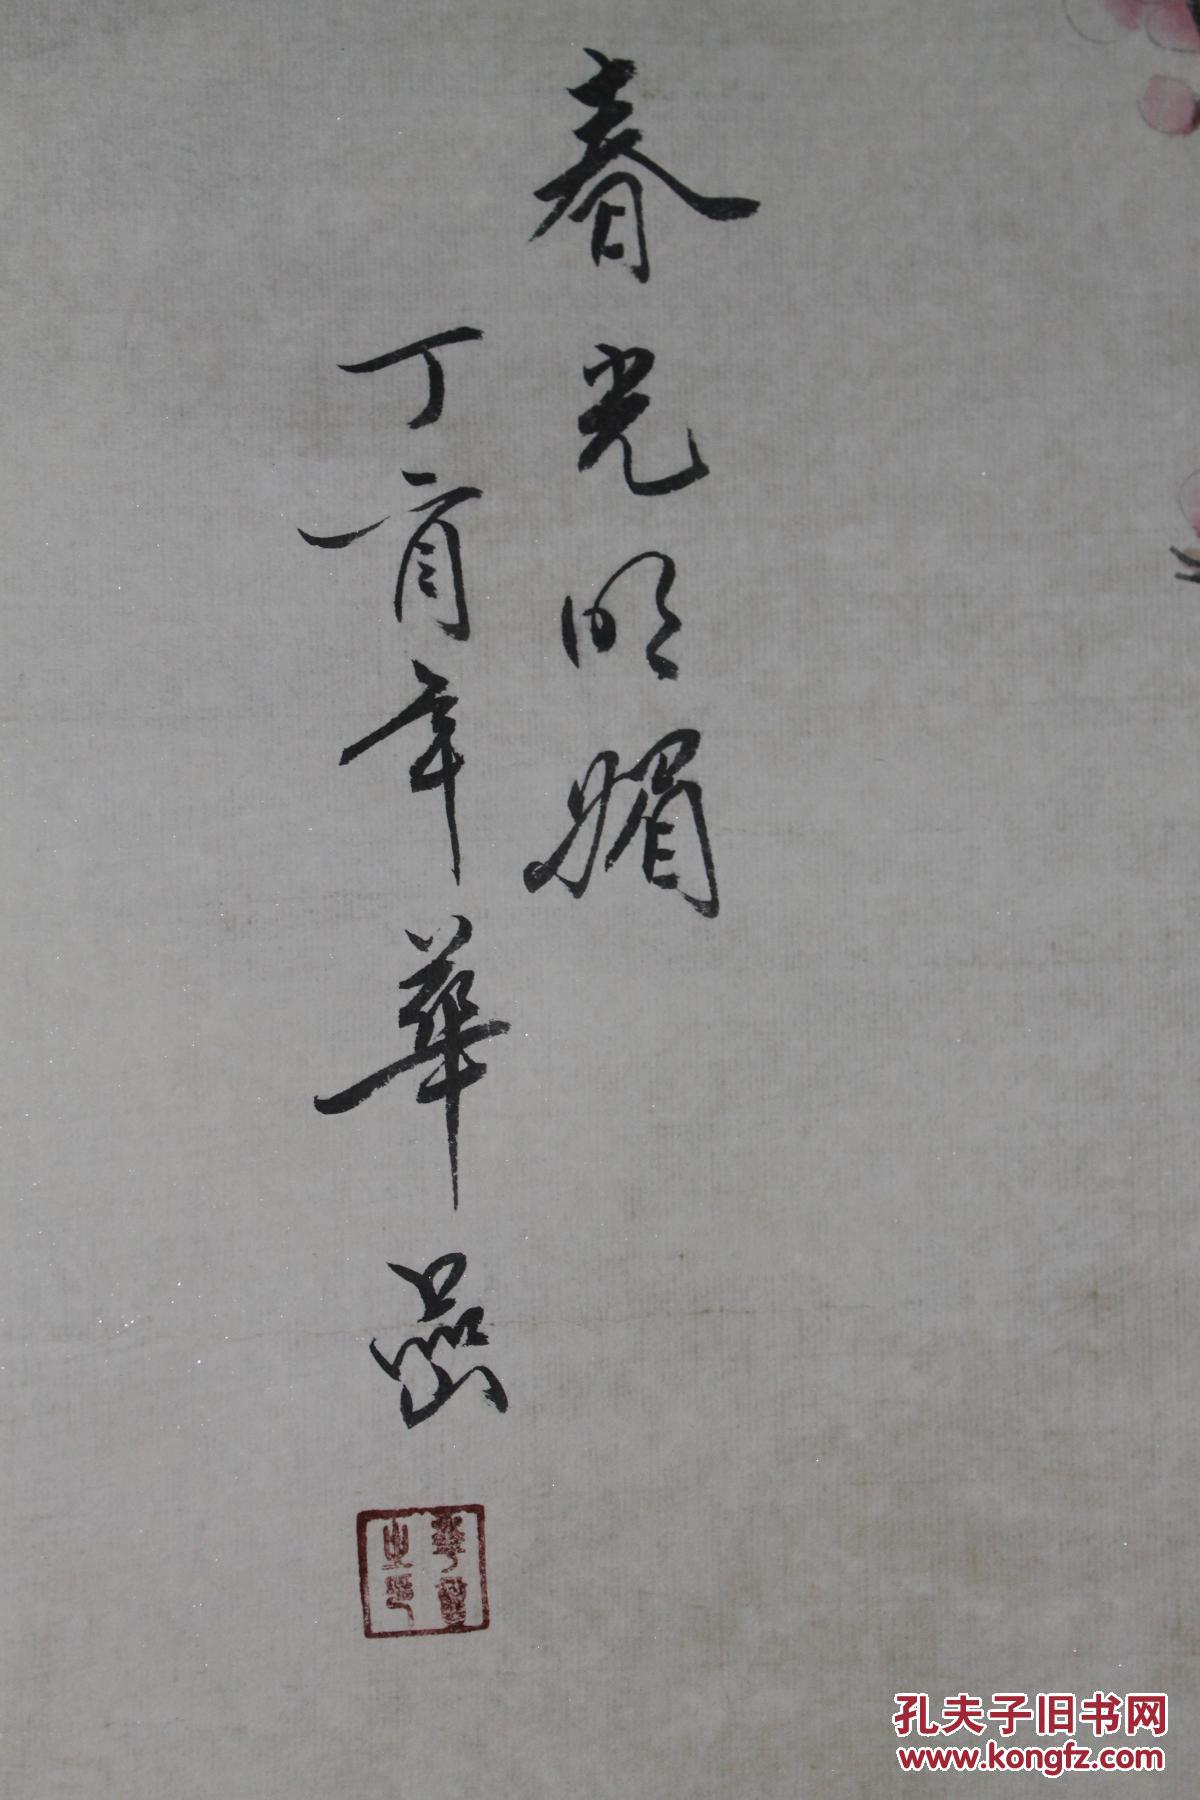 春光明媚
丁酉年華嵒
孔夫子旧书网
www.kongfz.com